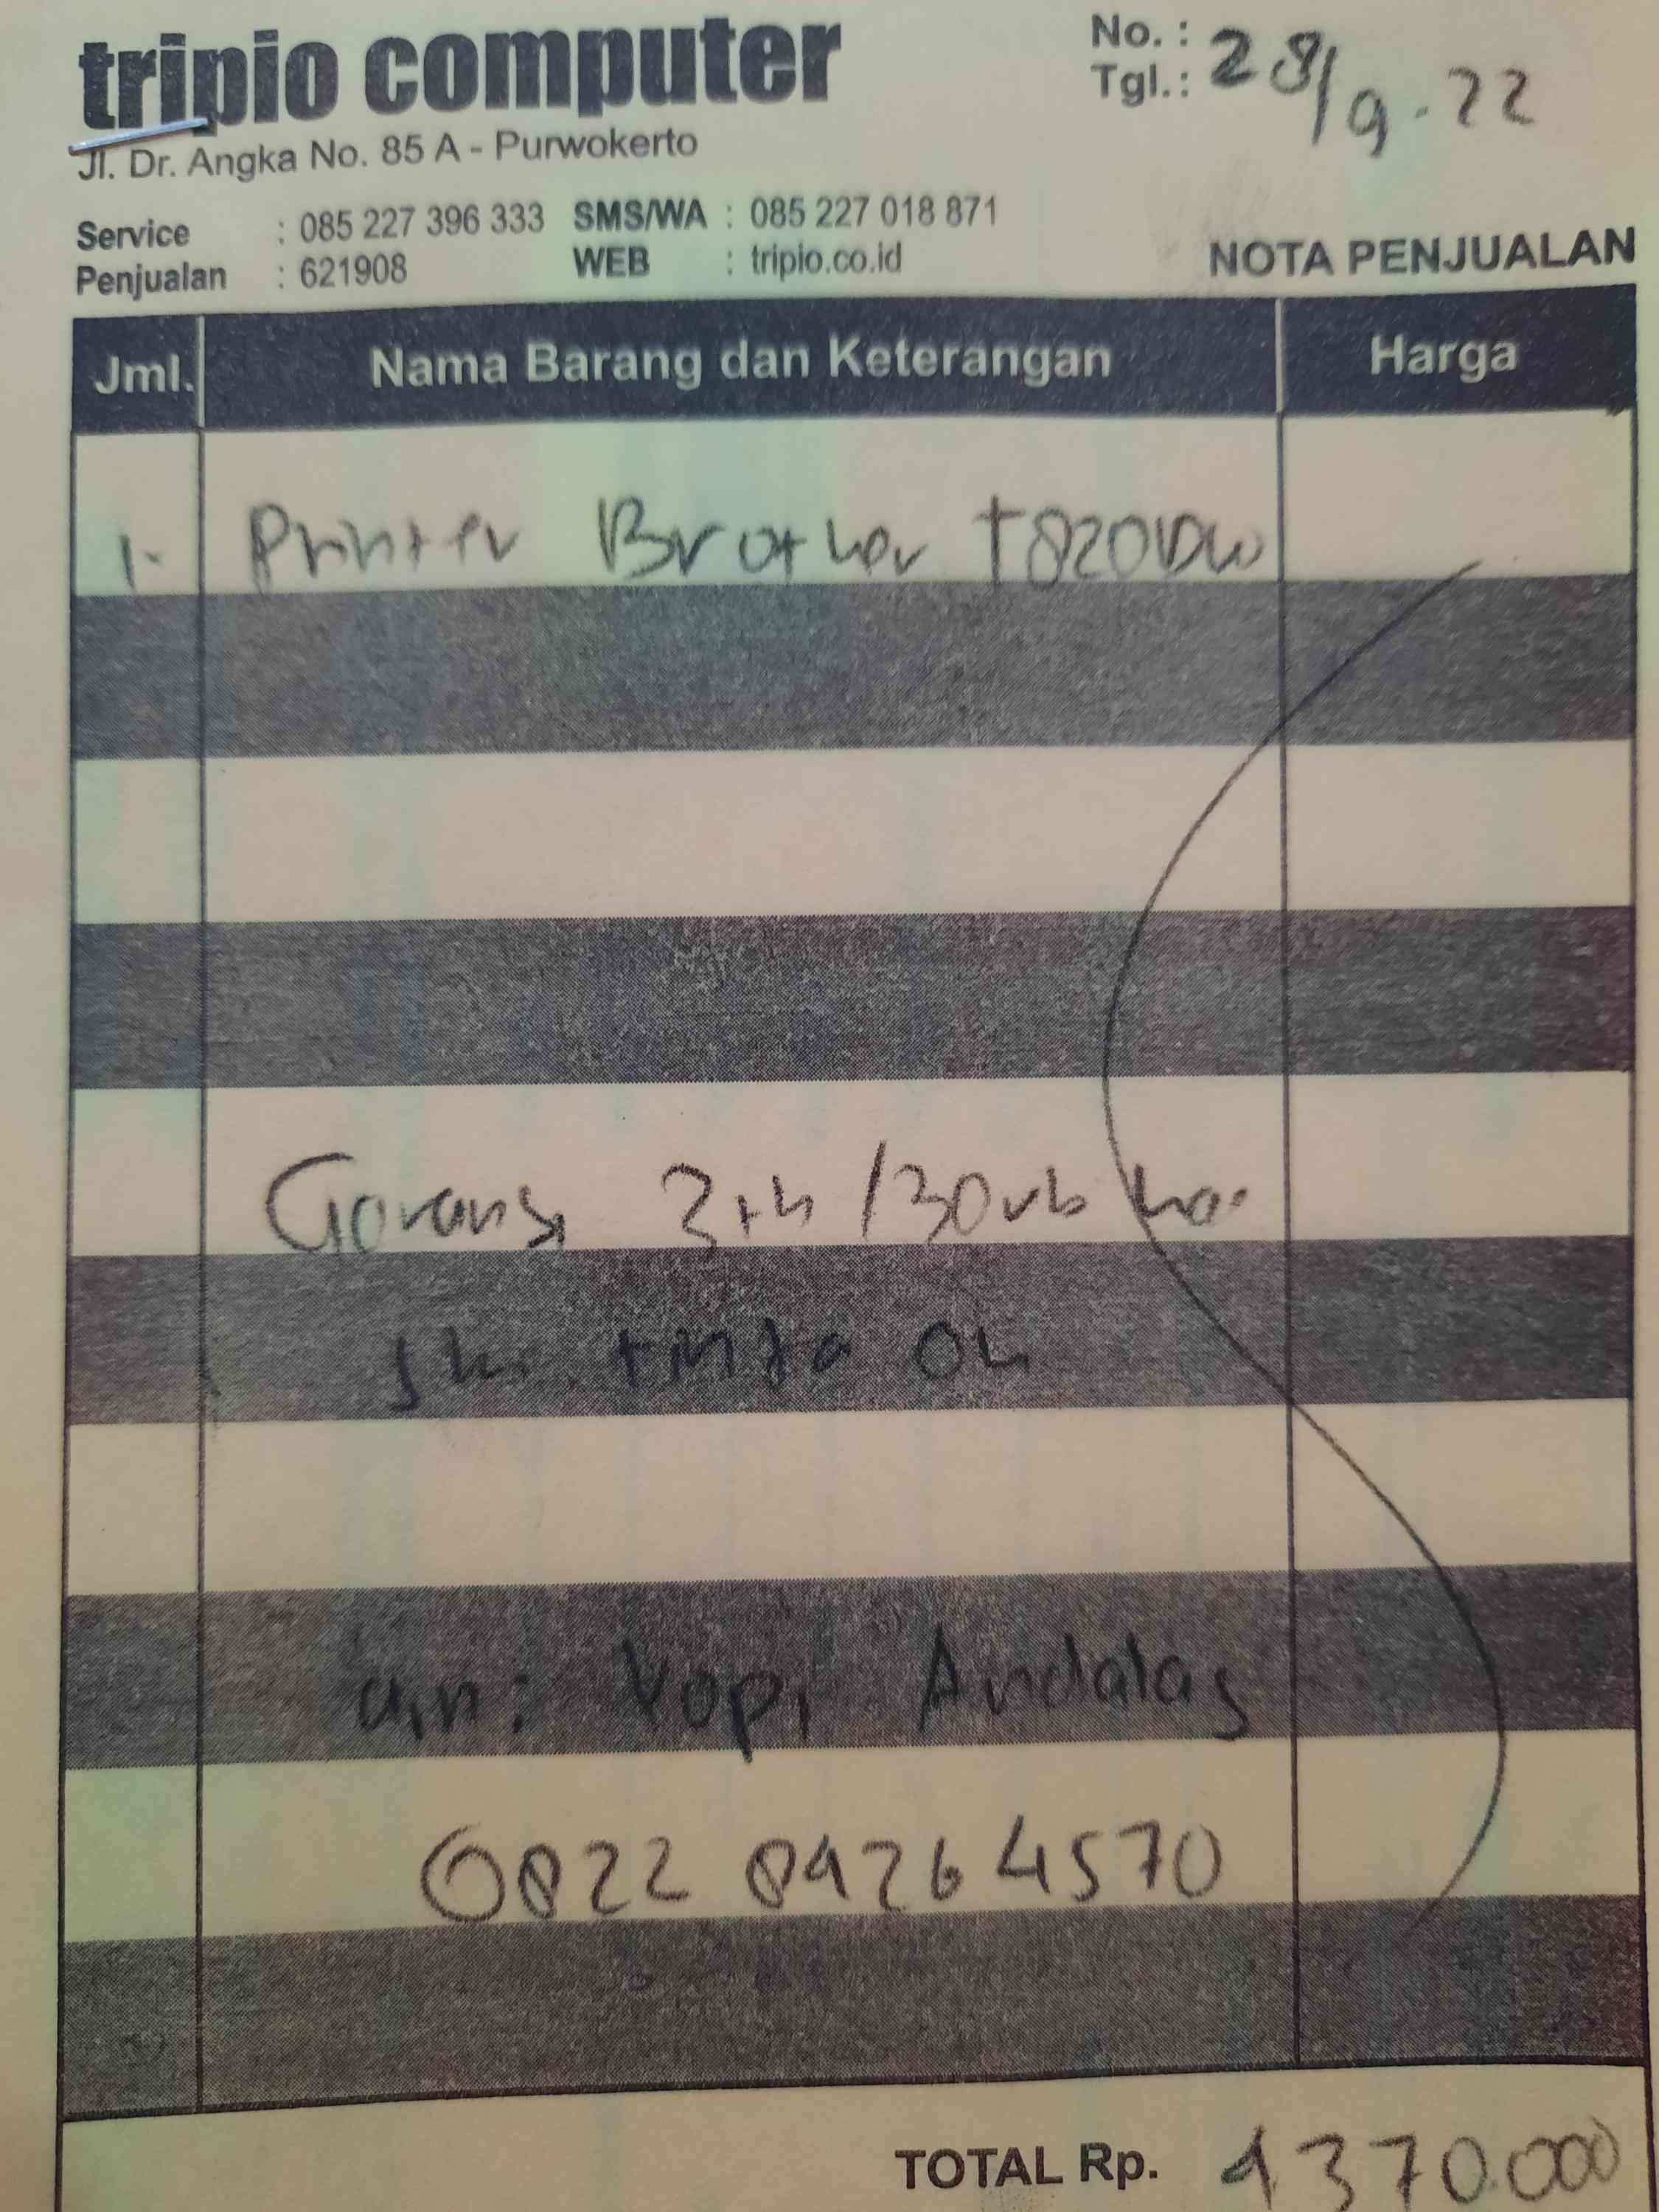 tripio computer
Jl. Dr. Angka No. 85 A - Purwokerto
No. :
Tgl. : 28/9-22
Service : 085 227 396 333 SMS/WA : 085 227 018 871
Penjualan : 621908 WEB : tripio.co.id
NOTA PENJUALAN
Jml. Nama Barang dan Keterangan Harga
1. Printer Brother T820DW
Garansi 3th /30rb
tinta
a,n: Kopi Andalas
0822 89264570
TOTAL Rp. 4.370.000